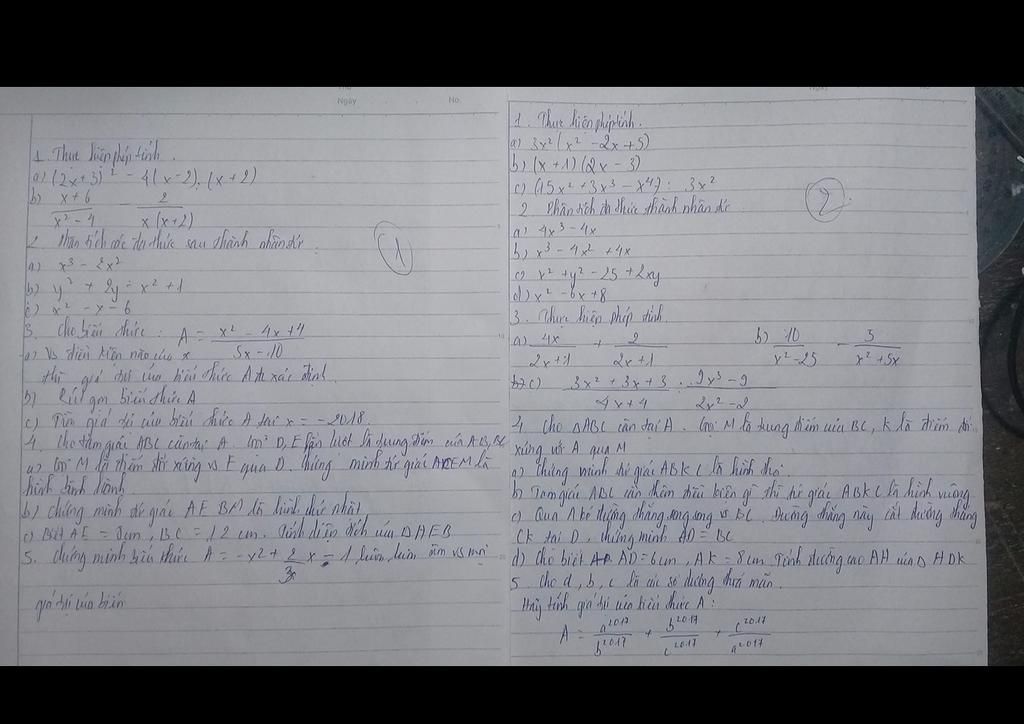 Ngày
No.
1. Thực hiện phép tính.
a) (2x+3)² - 4(x-2).(x+2)
b) \frac{x+6}{x²-4} - \frac{2}{x(x+2)}
2. Phân tích các đa thức sau thành nhân tử:
a) x³ - 2x²
b) y² + 2y - x² + 1
c) x² - x - 6
3. Cho biểu thức: A = \frac{x² - 4x + 4}{5x - 10}
a) Vs điều kiện nào của x
thì giá trị của biểu thức A đc xác định.
b) Rút gọn biểu thức A
c) Tìm giá trị của biểu thức A tại x = -2018.
4. Cho tam giác ABC cân tại A. Gọi D, E lần lượt là trung điểm của AB, BC
a) Gọi M là điểm đối xứng vs E qua D. Chứng minh tứ giác ACEM là
hình bình hành.
b) chứng minh tứ giác AEBM là hình chữ nhật
c) Biết AE = 8cm, BC = 12cm. Tính diện tích của △AEB
5. chứng minh biểu thức A = -x² + \frac{2}{3} x - 1 luôn luôn âm vs mọi
giá trị của biến
1
1. Thực hiện phép tính.
a) 3x² (x² - 2x + 5)
b) (x+1)(2x-3)
c) (15x² + 3x³ - x⁴) : 3x²
2. Phân tích đa thức thành nhân tử
a) 4x³ - 4x
b) x³ - 4x² + 4x
c) x² + y² - 25 + 2xy
d) x² - 6x + 8
3. Thực hiện phép tính.
a) \frac{4x}{2x+1} + \frac{2}{2x+1} b) \frac{10}{x²-25} - \frac{5}{x²+5x}
c) \frac{3x² + 3x + 3}{4x+4} : \frac{9x³ - 9}{2x² - 2}
4. Cho △ABC cân tại A. Gọi M là trung điểm của BC, K là điểm đối
xứng với A qua M
a) Chứng minh tứ giác ABKC là hình thoi.
b) Tam giác ABC cần thêm điều kiện gì thì tứ giác ABKC là hình vuông
c) Qua A kẻ đường thẳng song song vs BC. Đường thẳng này cắt đường thẳng
CK tại D, chứng minh AD = BC
d) Cho biết AD = 6cm, AK = 8cm. Tính đường cao AH của △ADK
5. Cho a, b, c là các số dương thoả mãn.
Hãy tính giá trị của biểu thức A:
A = \frac{a²⁰¹⁷}{b²⁰¹⁷} + \frac{b²⁰¹⁷}{c²⁰¹⁷} + \frac{c²⁰¹⁷}{a²⁰¹⁷}
2